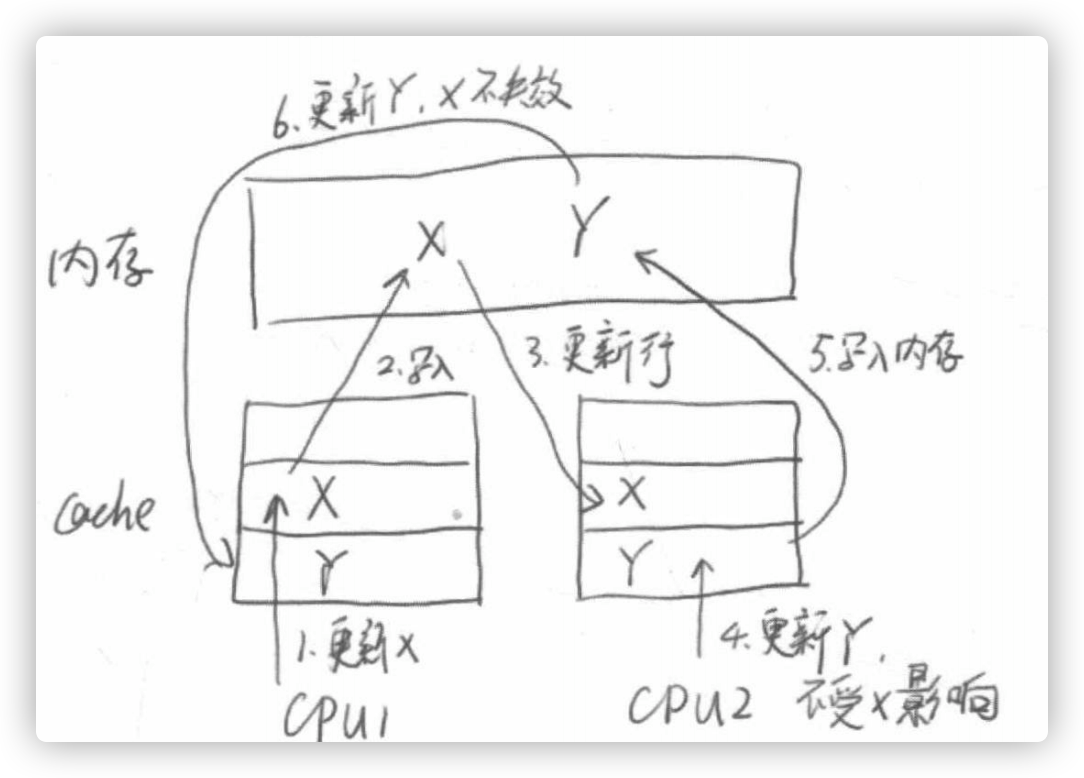 6.更新Y,X不失效
内存
X
Y
2.写入
3.更新行
5.写入内存
Cache
X
Y
X
Y
1.更新X
4.更新Y,
不受X影响
CPU1
CPU2